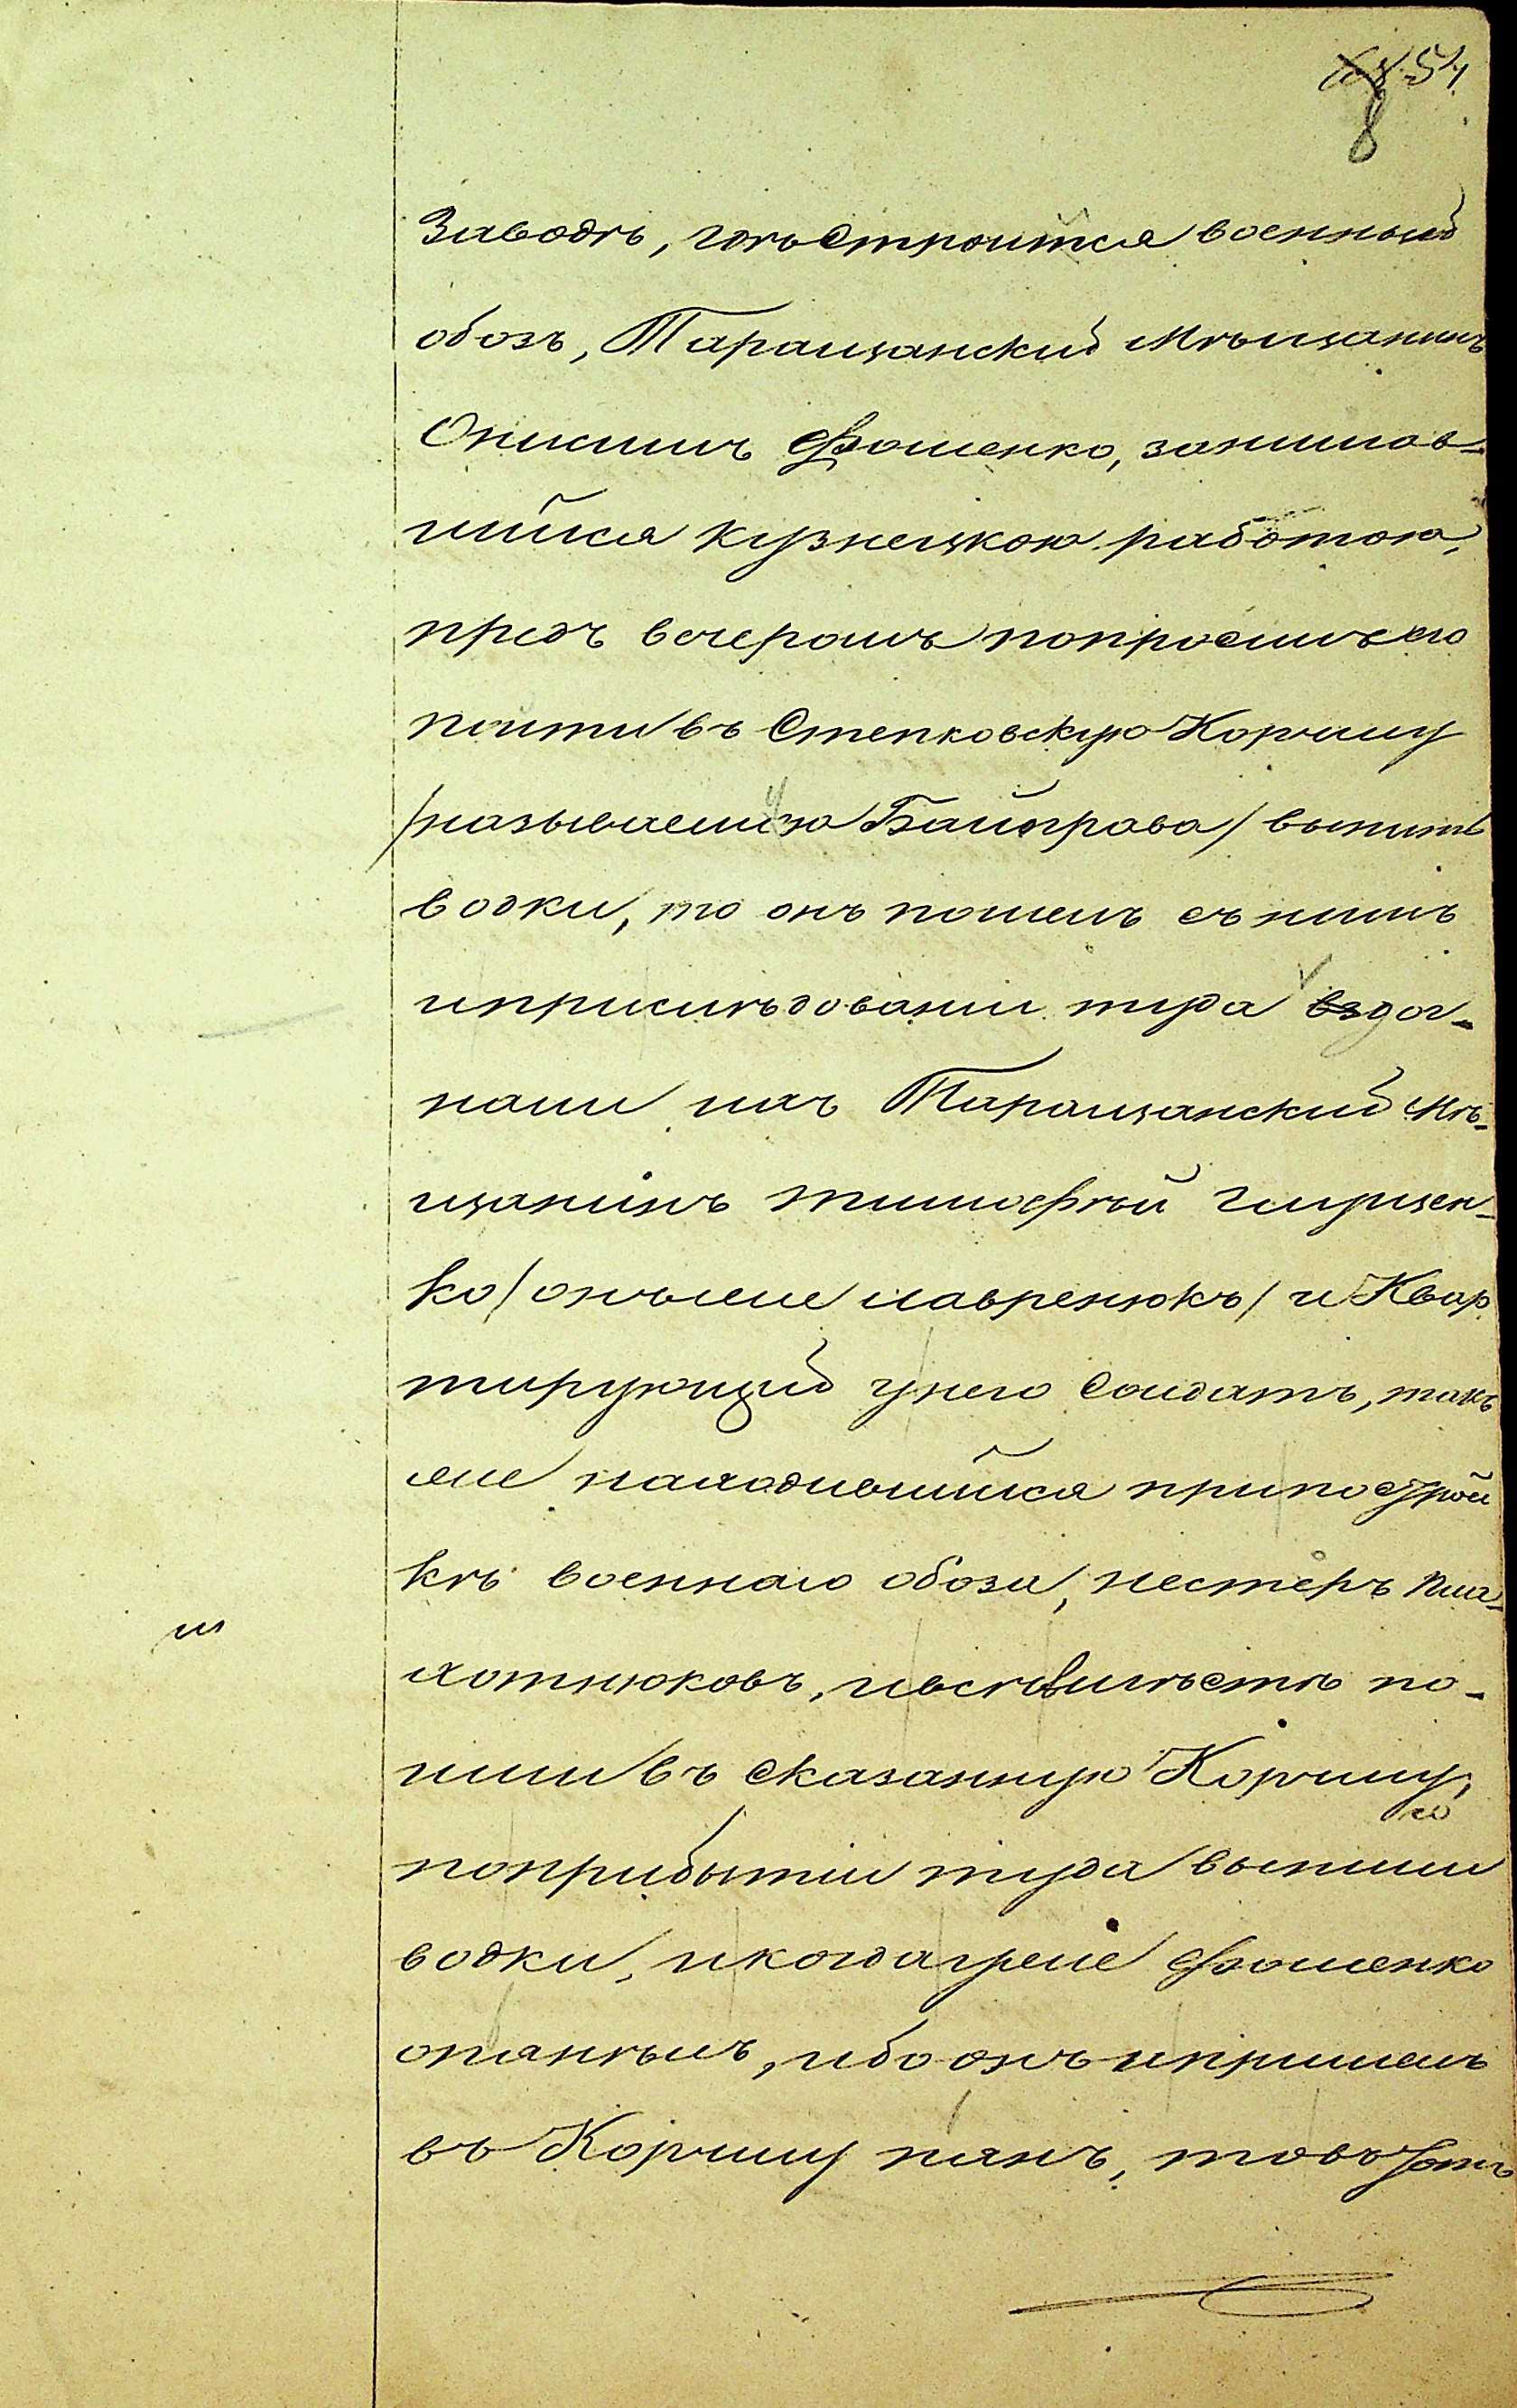 54
8
Заводѣ, гдѣ Строится военный
обозъ, Таращанскій Мѣщанинъ
Онисимъ Фоменко, занимав-
шийся кузнецкою работою,
предъ вечеромъ попросилъ его
пойти въ Степковскую Корчму
/называемую Байправа/ выпить
водки, то онъ пошелъ съ нимъ
и прислѣдованіи туда дог-
нали ихъ Таращанскій Мѣ-
щанинъ тимофѣй глущен-
ко /онъ же лавренюкъ/ и Квар
тирующій у него Солдатъ, такъ
же находившийся при построй
кѣ военнаго обоза, нестеръ Пла-
хотнюковъ, и всѣ вмѣстѣ по-
шли въ Сказанную Корчму,
по прибытіи туда выпили
водки, и когда уже Фоменко
опянѣлъ, ибо онъ и пришелъ
въ Корчму пянъ, то въ этотъ